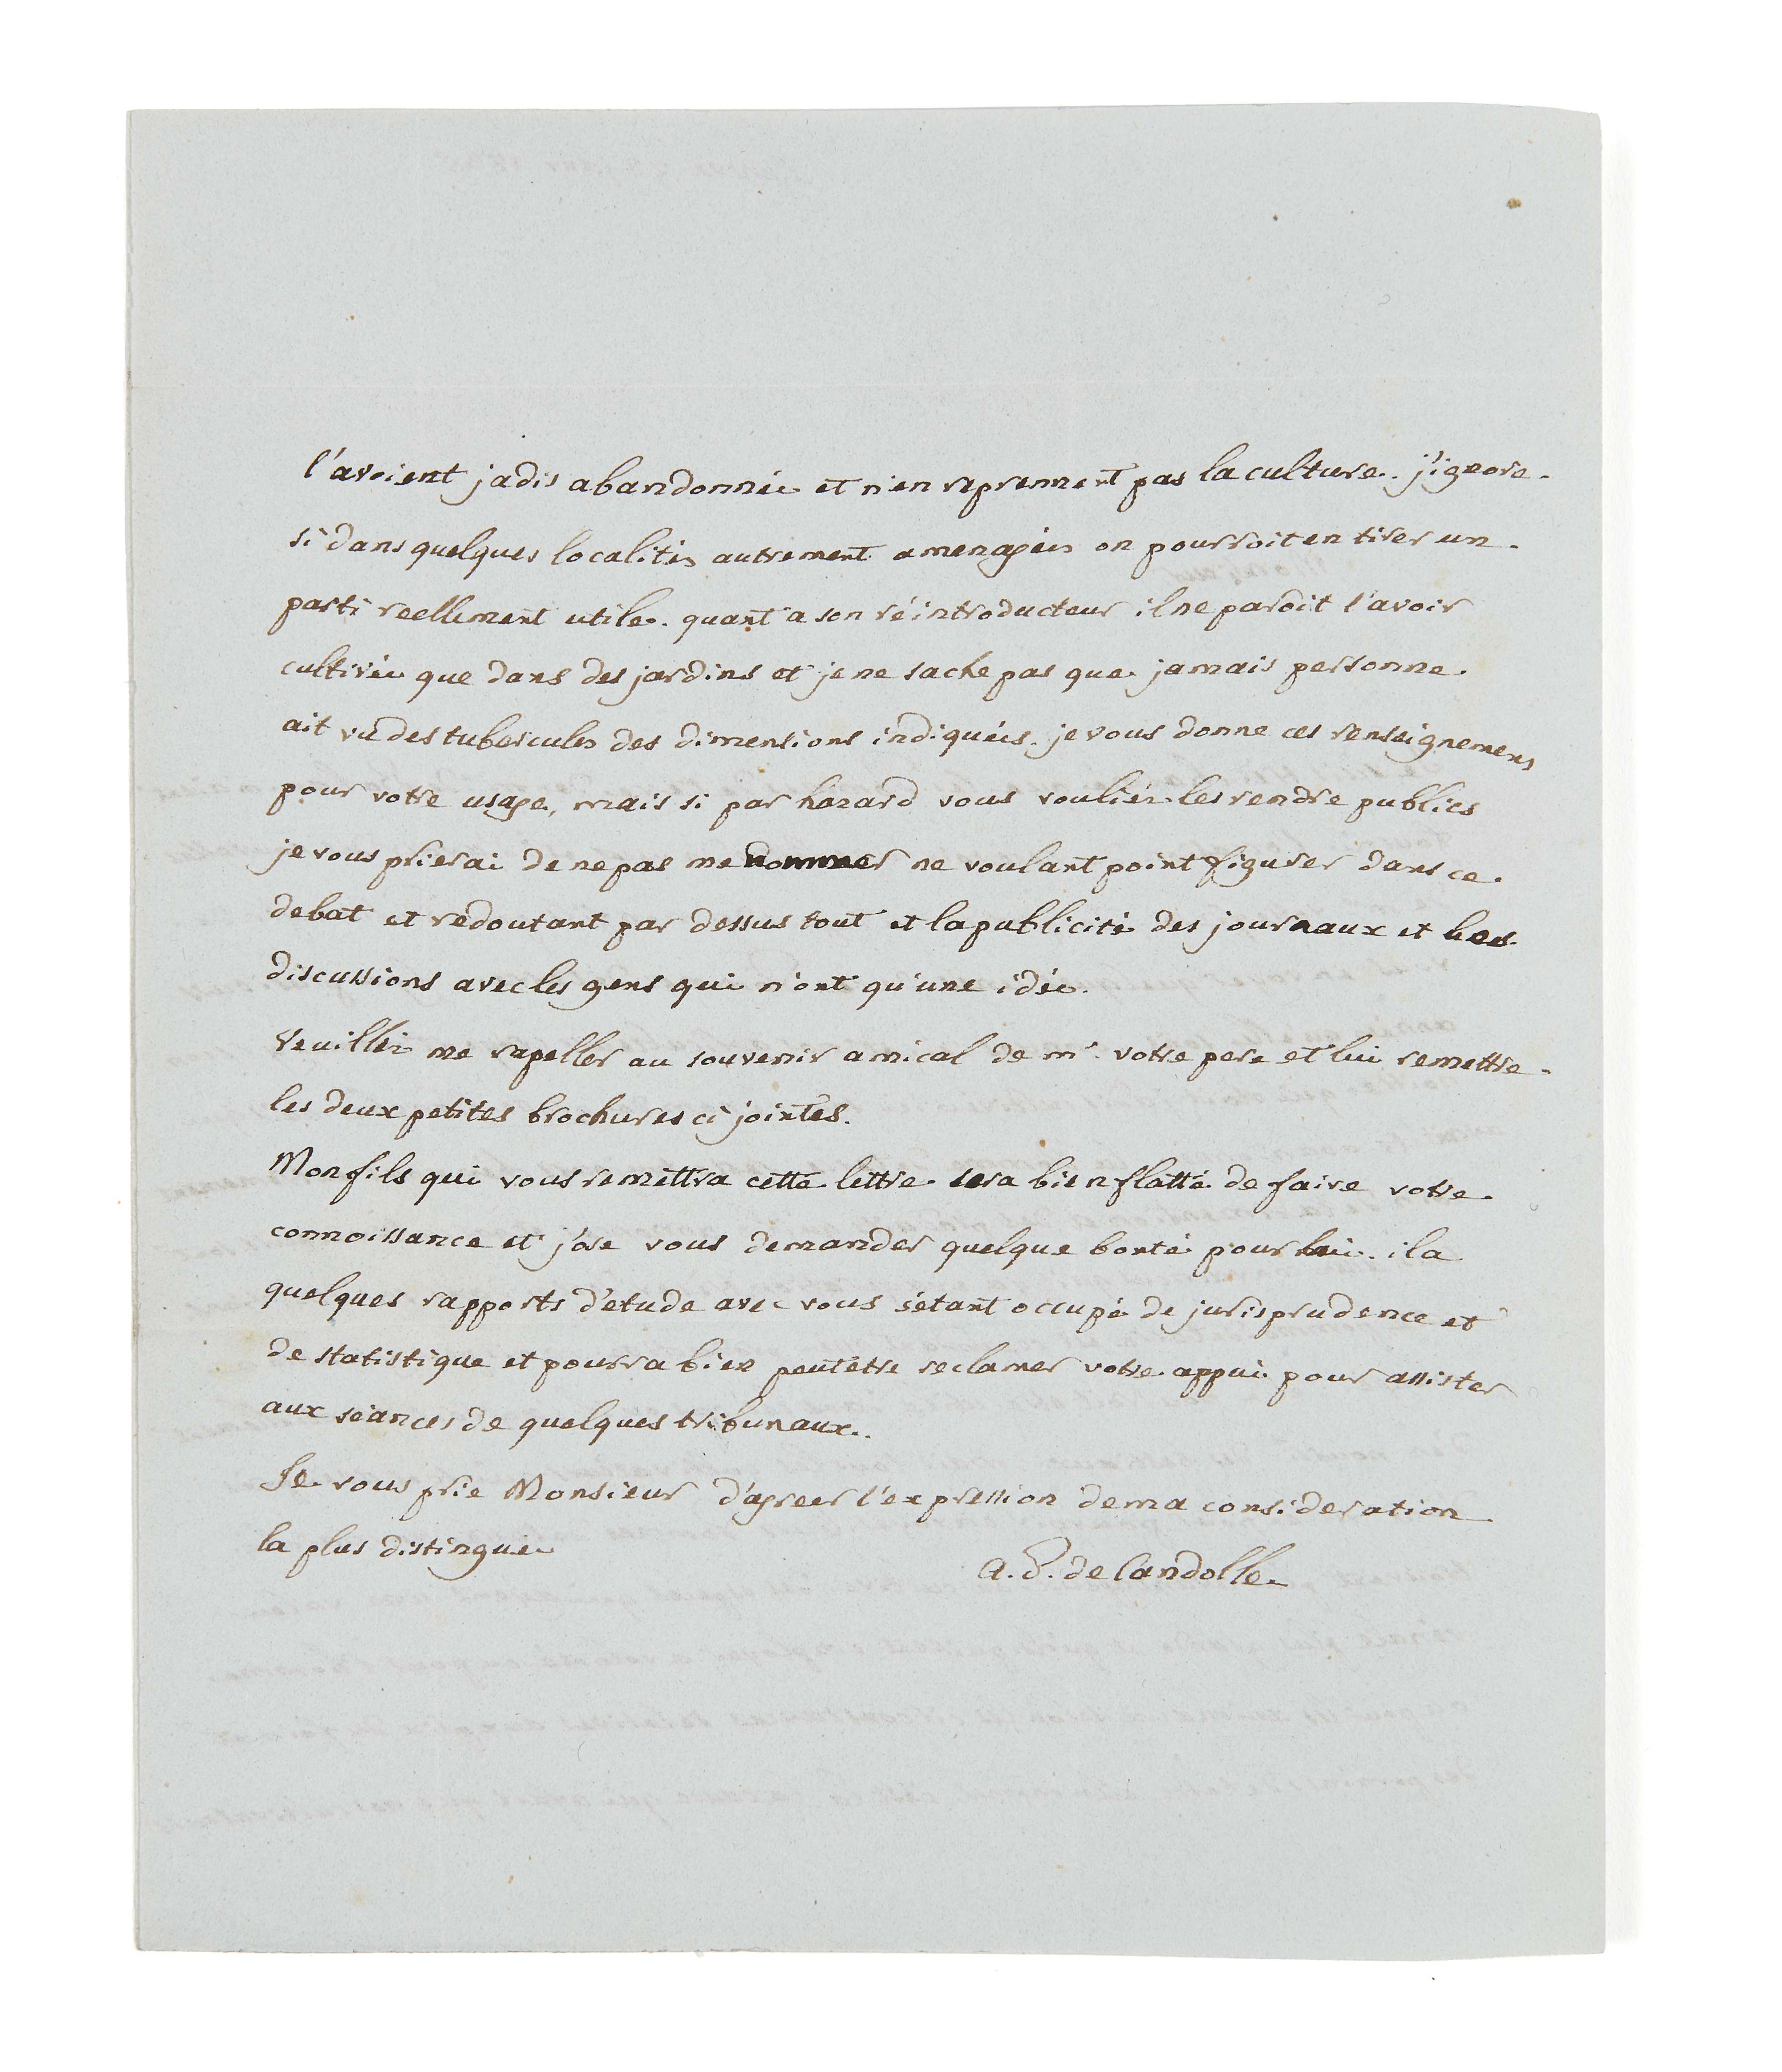 l'avoient jadis abandonnée et n'en reprennent pas la culture. j'ignore
si dans quelques localités autrement amenagées on pourroit en tirer un
parti reellement utile. quant a son réintroducteur il ne paroit l'avoir
cultivée que dans des jardins et je ne sache pas que jamais personne
ait vu des tubercules des dimensions indiquées. je vous donne ces renseignemens
pour votre usage, mais si par hazard vous vouliéz les rendre publics
je vous prierai de ne pas me nommer ne voulant point figurer dans ce
debat et redoutant par dessus tout et la publicité des journaux et les
discussions avec les gens qui n'ont qu'une idée.
Veuilléz me rapeller au souvenir amical de mr. votre pere et lui remettre
les deux petites brochures ci jointes.
Mon fils qui vous remettra cette lettre sera bien flatté de faire votre
connoissance et j'ose vous demander quelque bonté pour lui. il a
quelques rapports d'etude avec vous s'étant occupé de jurisprudence et
de statistique et pourra bien peutêtre reclamer votre appui pour assister
aux séances de quelques tribunaux.
Je vous prie Monsieur d'agreer l'expression de ma consideration
la plus distinguée
A. P. de Candolle